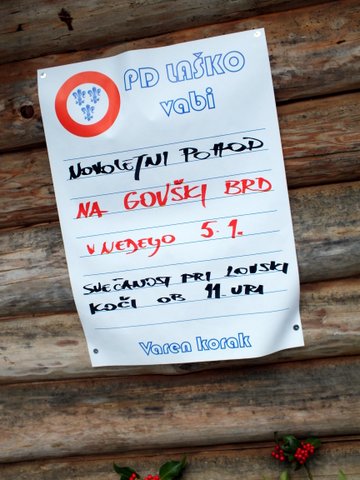 PD LAŠKO
vabi
NOVOLETNI POHOD
NA GOVŠKI BRD
V NEDEYO 5.1.
SVEČANOST PRI LOVSKI
KOČI OB 11. URI
Varen korak